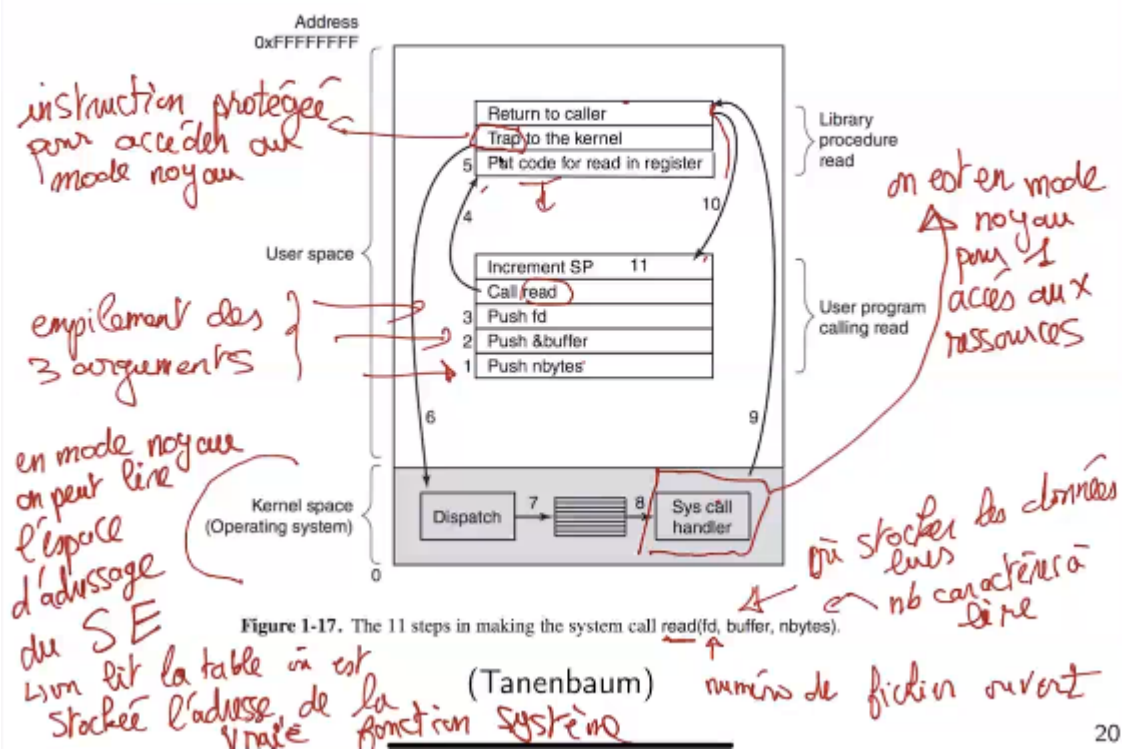 Address
0xFFFFFFFF
instruction protégée
pour accéder aux
mode noyau
Return to caller
Trap to the kernel
5 Put code for read in register
Library
procedure
read
4
10
on est en mode
noyau
pour 1
accès aux
ressources
User space
Increment SP 11
Call read
3 Push fd
2 Push &buffer
1 Push nbytes
User program
calling read
empilement des
3 arguments
6
9
en mode noyau
on peut lire
l'espace
d'adressage
du SE
Kernel space
(Operating system)
Dispatch
7
8
Sys call
handler
0
où stocker les données
lues
nb caractères à
lire
Figure 1-17. The 11 steps in making the system call read(fd, buffer, nbytes).
↳ on lit la table où est
stockée l'adresse de la
vraie fonction système
(Tanenbaum)
numéro de fichier ouvert
20